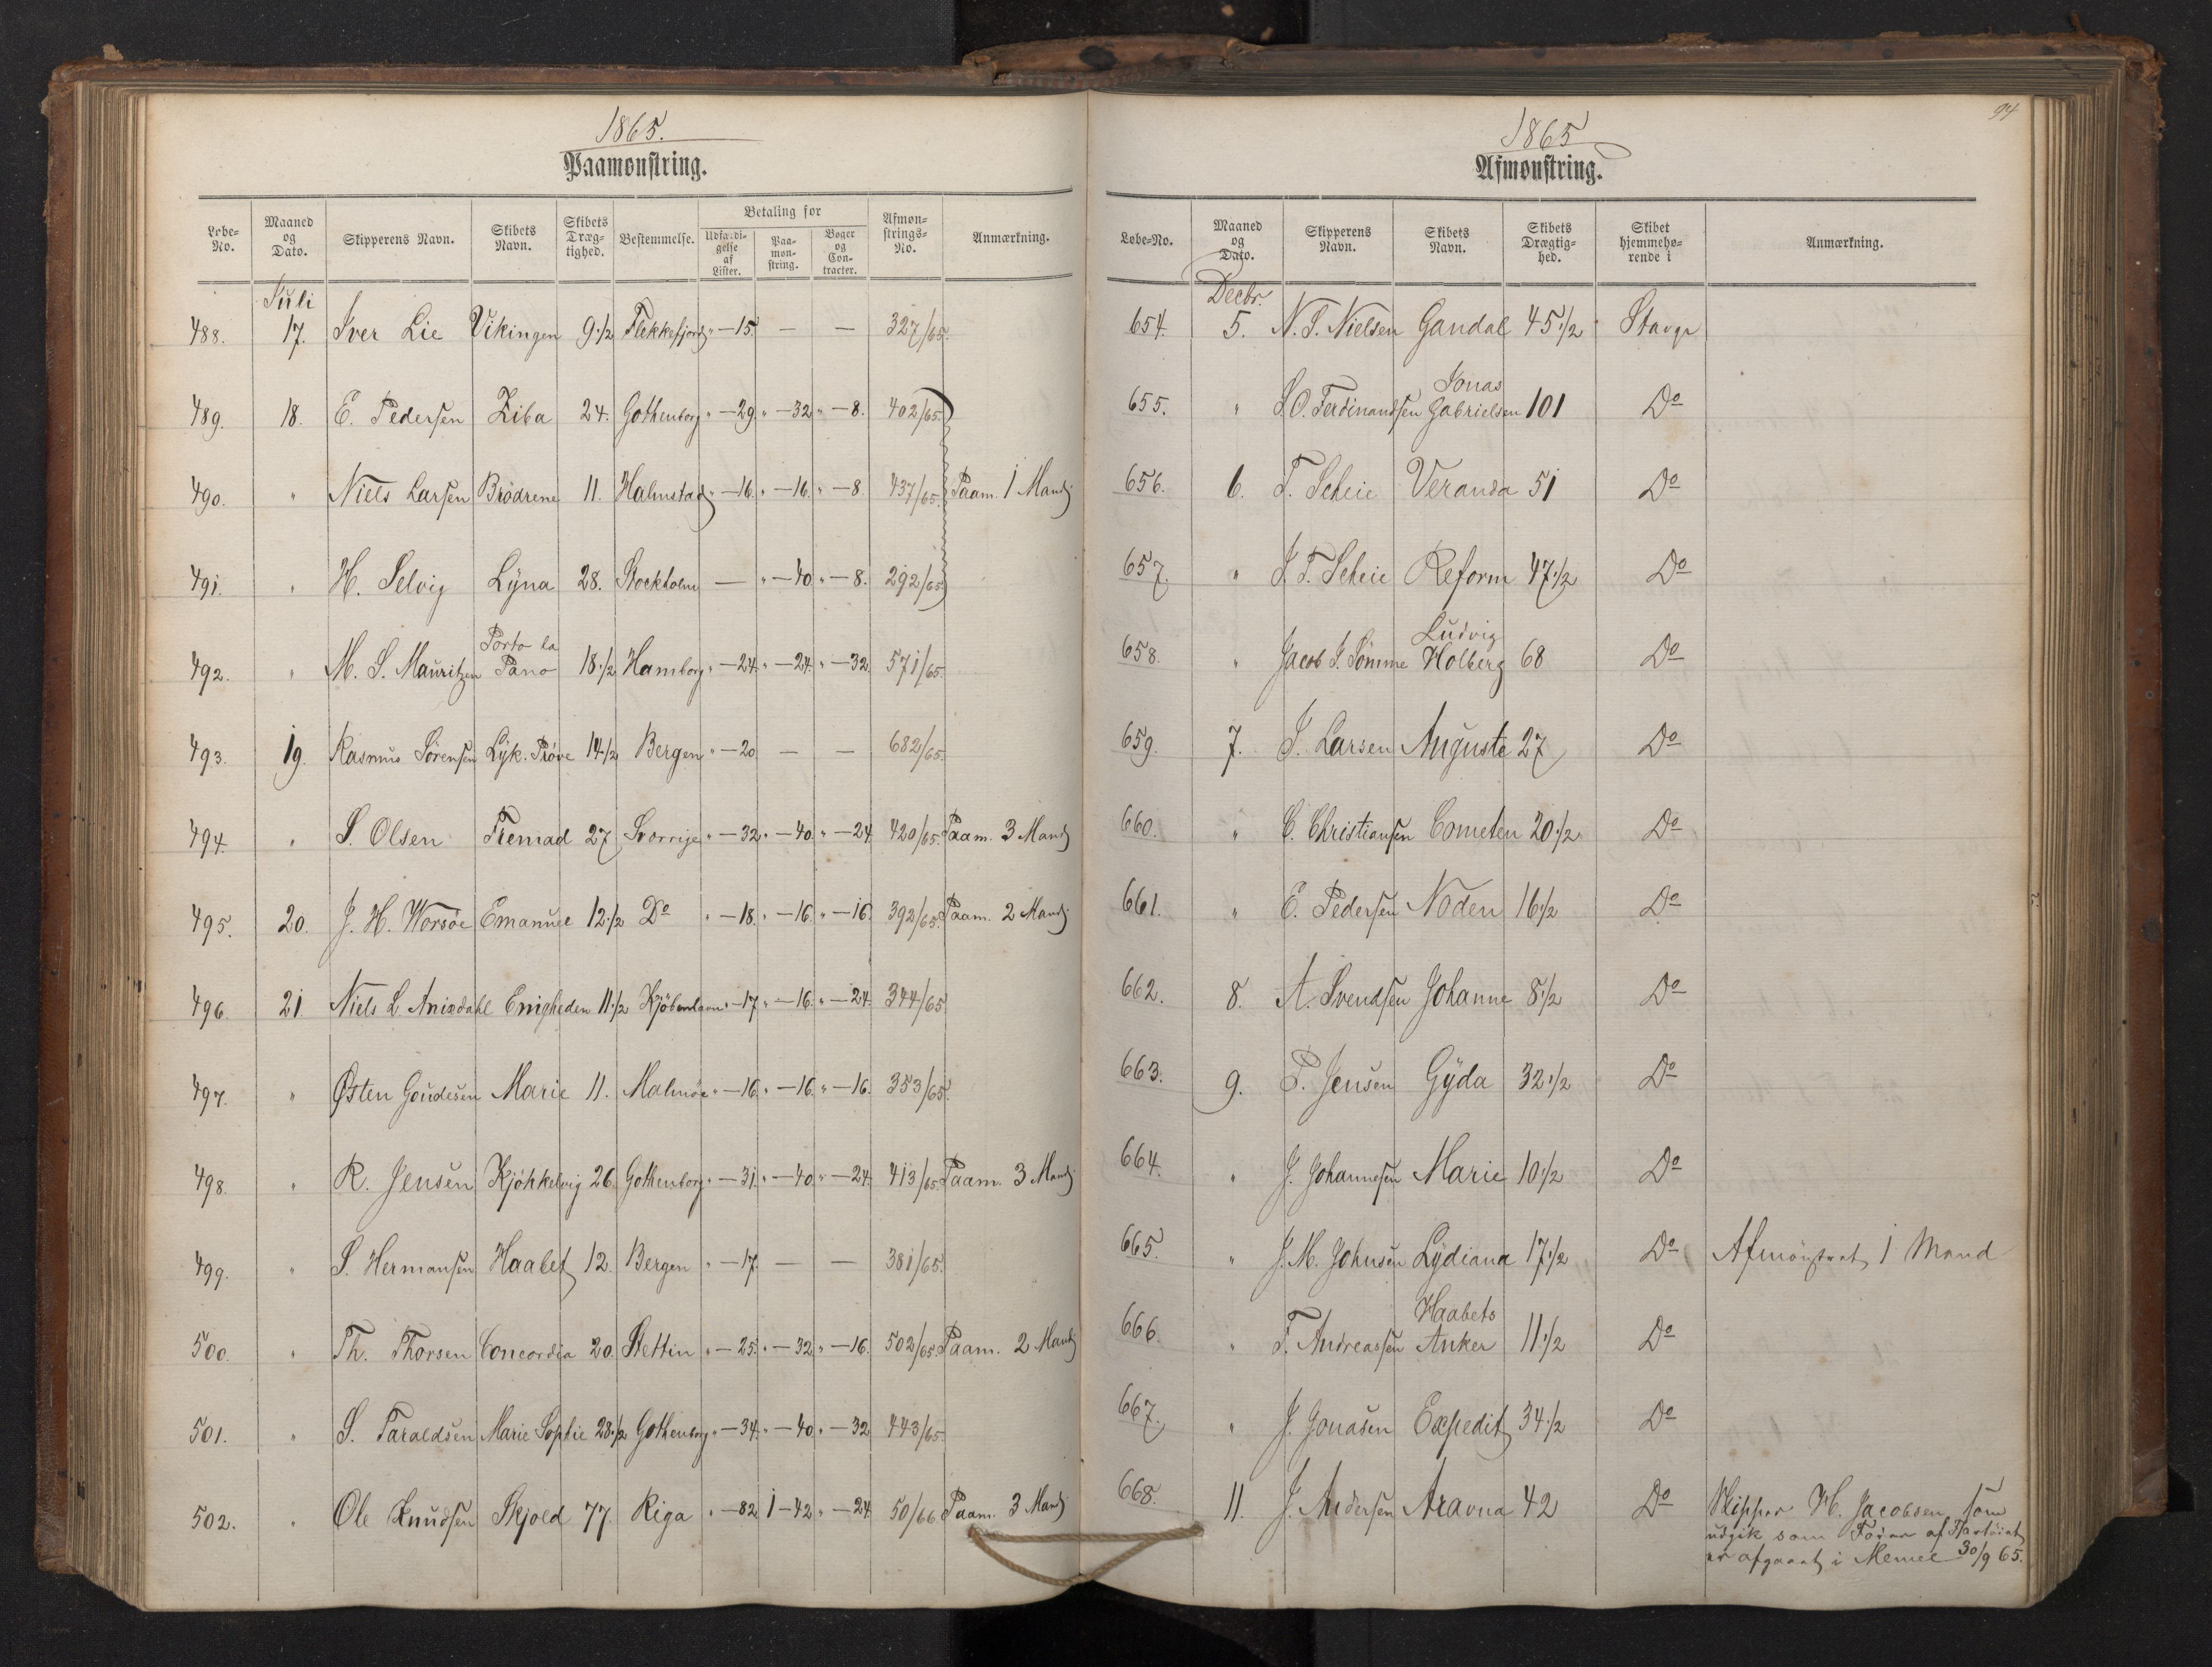 1865.
Paamønstring.
Løbe-No. | Maaned og Dato. | Skipperens Navn. | Skibets Navn. | Skibets Dræg-tighed. | Bestemmelse. | Betaling for Udfærdi-gelse af Lister. | Paa-møn-string. | Bøger og Con-tracter. | Afmøn-strings-No. | Anmærkning.
Juli
488. 17. Iver Lie Vikingen 9 1/2 Flekkefjord " — 15. — — 327/65.
489. 18. E. Pedersen Ziba 24. Gothenborg " — 29 " — 32 " — 8. 402/65.
490. " Niels Larsen Brödrene 11. Halmstad " — 16. " — 16. " — 8. 437/65. Paam. 1 Mand
491. " H. Selvig Lÿna 28. Stockholm — " — 40 " — 8. 292/65.
Porto la
492. " M. S. Mauritzen Pano 18 1/2 Hamborg " — 24. " — 24. " — 32 571/65.
493. 19. Rasmus Sörensen Lÿk. Pröve 14 1/2 Bergen " — 20 — — 682/65.
494. " S. Olsen Fremad 27 Sverrige " — 32 " — 40. " — 24. 420/65. Paam. 3 Mand
495. 20. J. H. Worsöe Emanuel 12 1/2 Do " — 18. " — 16. " — 16. 392/65. Paam. 2 Mand
496. 21 Niels L. Anisdahl Enigheden 11 1/2 Kjöbenhavn " — 17. " — 16. " — 24. 344/65
497. " Østen Goudesen Marie 11. Malmöe " — 16. " — 16. " — 16. 353/65.
498. " R. Jensen Kjöhkelvig 26. Gothenborg " — 31. " — 40. " — 24. 413/65. Paam. 3 Mand
499. " S. Hermansen Haabet 12. Bergen " — 17. — — 381/65.
500. " Th. Thorsen Concordia 20. Stettin " — 25. " — 32 " — 16. 502/65. Paam. 2 Mand
501. " S. Taraldsen Marie Sophie 28 1/2 Gothenborg " — 34. " — 40. " — 32 443/65.
502. " Ole Knudsen Skjold 77. Riga " — 82 1 — 42 " — 24. 50/66 Paam. 3 Mand
94
1865
Afmønstring.
Løbe-No. | Maaned og Dato. | Skipperens Navn. | Skibets Navn. | Skibets Drægtig-hed. | Skibet hjemmehø-rende i | Anmærkning.
Decbr.
654. 5. N. T. Nielsen Gandal 45 1/2 Stavgr
Jonas
655. " S. O. Ferdinandsen Gabrielsen 101 Do
656. 6. T. Scheie Veranda 51 Do
657. " J. T. Scheie Reform 47 1/2 Do
Ludvig
658. " Jacob J. Sömme Holberg 68 Do
659. 7. J. Larsen Auguste 27 Do
660. " C. Christiansen Cometen 20 1/2 Do
661. " E. Pedersen Noden 16 1/2 Do
662. 8. A. Svendsen Johanne 8 1/2 Do
663. 9. P. Jensen Gÿda 32 1/2 Do
664. " J. Johannesen Marie 10 1/2 Do
665. " J. M. Johnsen Lÿdiana 17 1/2 Do Afmönstret 1 Mand
Haabets
666. " T. Andreassen Anker 11 1/2 Do
667. " J. Jonasen Expedit 34 1/2 Do
668. 11. J. Andersen Aravna 42 Do Skipper H. Jacobsen som
udgik som Förer af Fartöiet
er afgaaet i Memel 30/9 65.